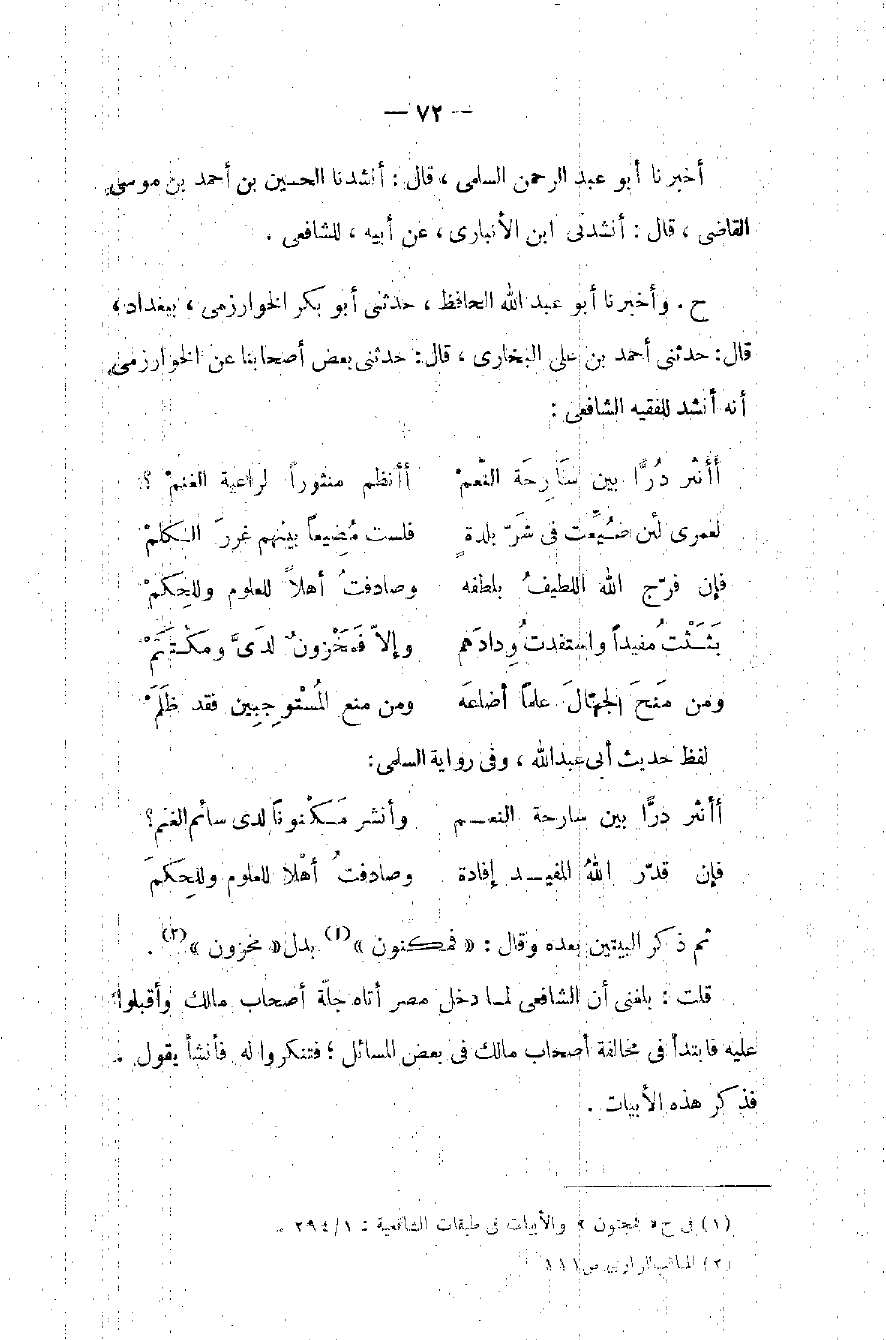 — ٧٢ —
أخبرنا أبو عبد الرحمن السلمى ، قال : أنشدنا الحسين بن أحمد بن موسى
القاضى ، قال : أنشدنى ابن الأنبارى ، عن أبيه ، للشافعى .
ح . وأخبرنا أبو عبد الله الحافظ ، حدثنى أبو بكر الخوارزمى ، ببغداد ،
قال : حدثنى أحمد بن على البخارى ، قال : حدثنى بعض أصحابنا عن الخوارزمى ،
أنه أنشد للفقيه الشافعى :
أَأَنثر دُرًّا بين سَارِحَة النَّعمْ أأنظم منثوراً لراعية الغنمْ ؟
لعمرى لئن ضُيِّعت فى شَرّ بلدةٍ فلست مُضِيعاً بينهم غررَ الكلمْ
فإن فرّج الله اللطيفُ بلطفه وصادفتُ أهلاً للعلوم وللحِكَمْ
بَثَثْتُ مفيداً واستفدتُ وِدادَهم وإلاّ فمَخْزونٌ لدىَّ ومكْتَتَمْ
ومن مَنحَ الجهّالَ علماً أضاعَه ومن منع المُسْتوجِبين فقد ظَلَمَْ
لفظ حديث أبى عبدالله ، وفى رواية السلمى :
أأنثر درًّا بين سارحة النعــم وأنشر مَكْنوناً لدى سائم الغنم ؟
فإن قدّر اللهُ المفيــد إفادة وصادفتُ أهْلاً للعلوم وللحِكَمَ
ثم ذكر البيتين بعده وقال : « فمكنون »(١) بدل « مخزون »(٢) .
قلت : بلغنى أن الشافعى لما دخل مصر أتاه جلّة أصحاب مالك وأقبلوا
عليه فابتدأ فى مخالفة أصحاب مالك فى بعض المسائل ؛ فتنكروا له فأنشأ يقول .
فذكر هذه الأبيات .
(١) فى ح « والأبيات فى طبقات الشافعية : ١/٢٩٤ .
(٢) المناقب للرازى ص ١١١